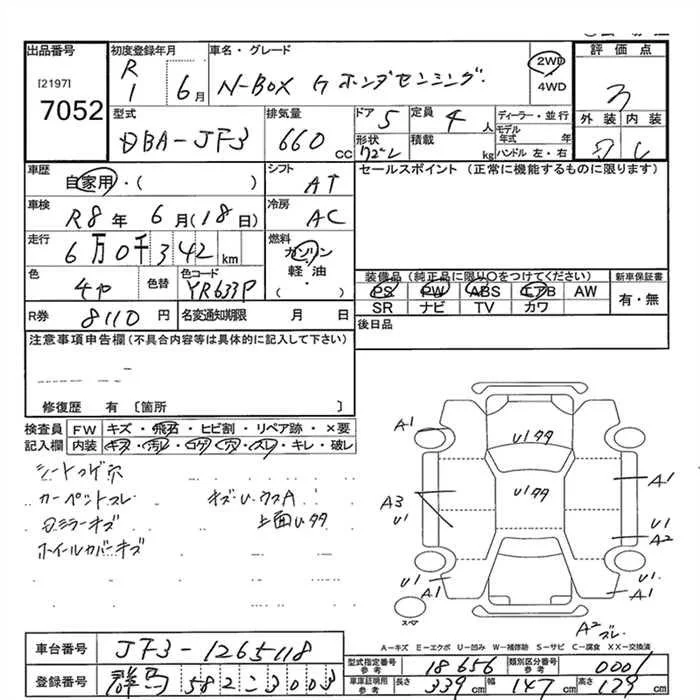 出品番号
[2197]
7052
初度登録年月
R1 6月
車名・グレード
N-BOX G ホンダセンシング
2WD・4WD
評価点
3
外装 内装
C
型式
DBA-JF3
排気量
660cc
ドア 5
定員 4人
形状 ワゴン
積載 kg
ディーラー・並行
モデル年式 年
ハンドル 左・右
車歴
自家用・( )
シフト AT
セールスポイント (正常に機能するものに限ります)
車検
R8年 6月(18日)
冷房 AC
走行
6万0千342km
燃料
ガソリン
軽・油
( )
色
色替
色コード YR633P
装備品(純正品に限り〇をつけてください)
PS PW ABS エアB AW
SR ナビ TV カワ
新車保証書
有・無
R券 8110円
名変通知期限 月 日
後日品
注意事項申告欄(不具合内容等は具体的に記入して下さい)
修復歴 有〔箇所 〕
検査員記入欄
FW キズ・飛石・ヒビ割・リペア跡・×要
内装 キズ・汚レ・コゲ・穴・スレ・キレ・破レ
シートコゲ穴
カーペットスレ
キズ・U・ウスA
ミラーキズ
上面Uタタ
ホイールカバーキズ
A1
Uタタ
Uタタ
A3
U1
A1
U1
A2
U1
A1
U1
A1
スペア
A2 スレ
A-キズ E-エクボ U-凹み W-補修跡 S-サビ C-腐食 XX-交換済
車台番号 JF3-1265118
登録番号 群馬 582 こ 3003
型式指定番号 参考 18656
類別区分番号 参考 0001
車庫証明用 参考
長さ 339cm
幅 147cm
高さ 179cm